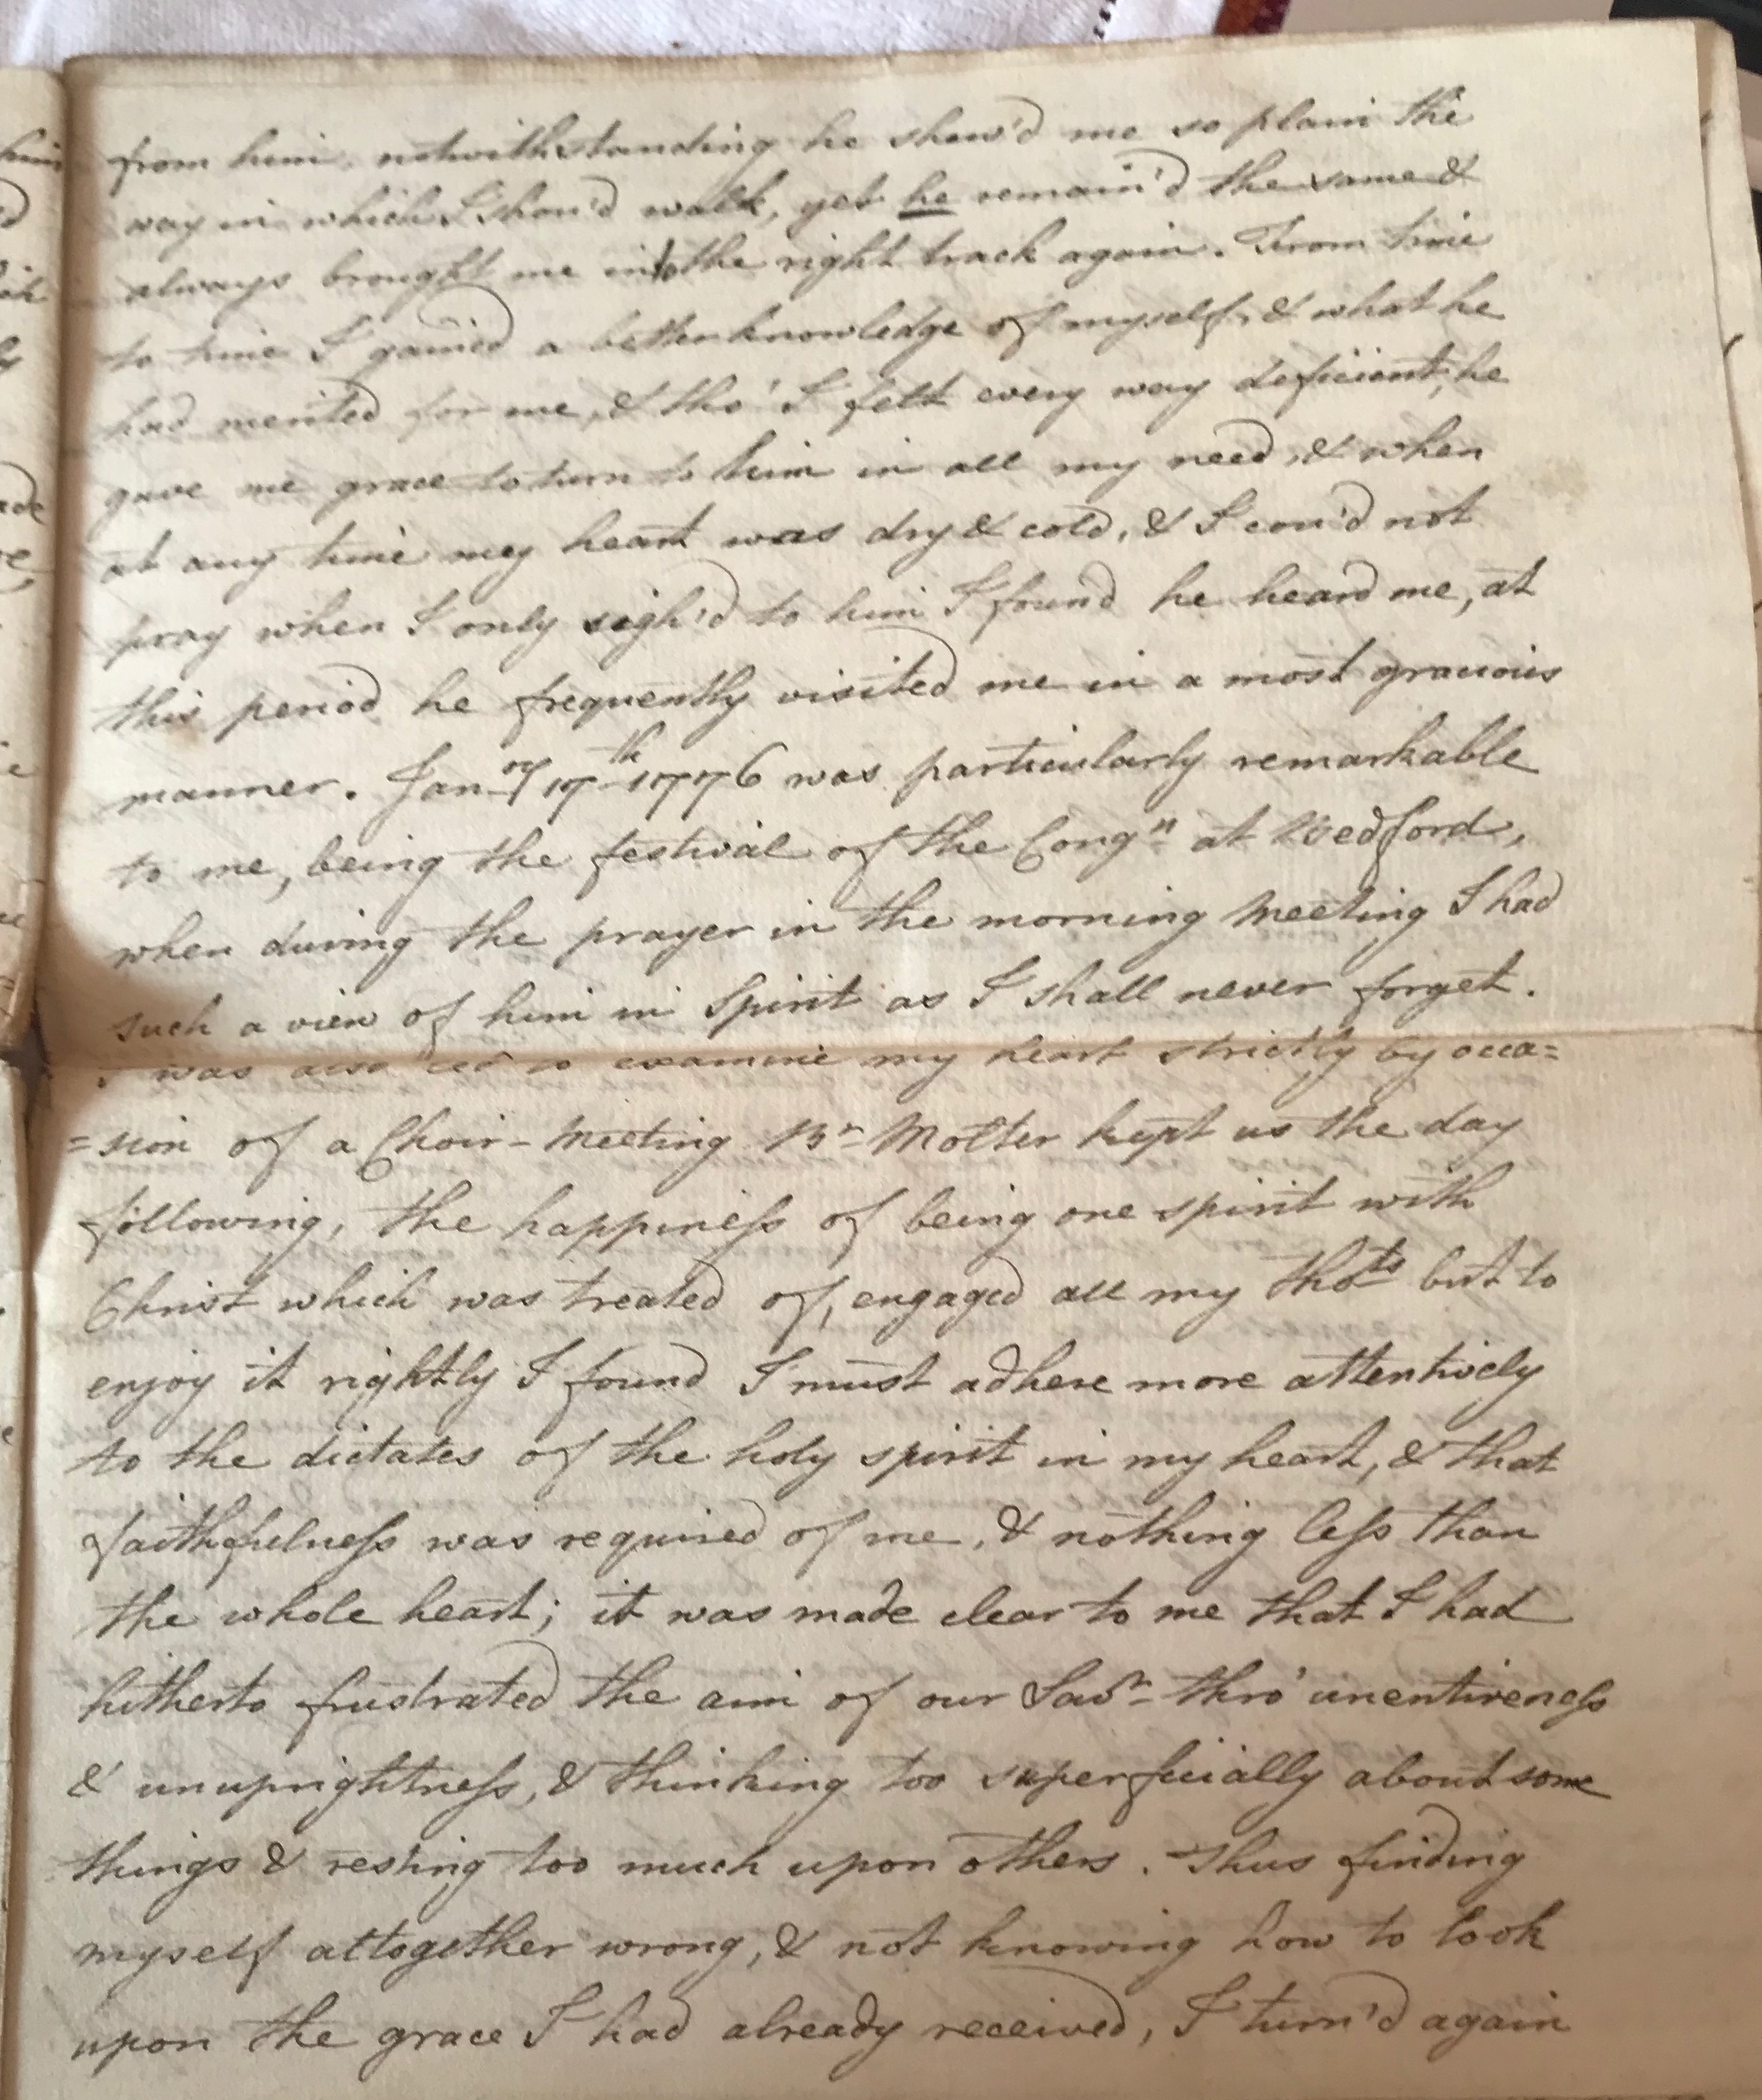 from him, notwithstanding he shew'd me so plain the
way in which I shou'd walk, yet he remain'd the same &
always brought me into the right track again. From time
to time I gained a better knowledge of myself, & what he
had merited for me, & tho' I felt every way deficient, he
gave me grace to turn to him in all my need, & when
at any time my heart was dry & cold, & I cou'd not
pray when I only sigh'd to him I found he heard me, at
this period he frequently visited me in a most gracious
manner. Janry 17th 1776 was particularly remarkable
to me, being the festival of the Congn at Bedford,
when during the prayer in the morning Meeting I had
such a view of him in Spirit as I shall never forget.
I was also led to examine my heart strictly by occa=
=sion of a Choir-Meeting Br Molter kept us the day
following, the happiness of being one spirit with
Christ which was treated of, engaged all my thots but to
enjoy it rightly I found I must adhere more attentively
to the dictates of the holy spirit in my heart, & that
faithfulness was required of me, & nothing less than
the whole heart; it was made clear to me that I had
hitherto frustrated the aim of our Savr thro' unentireness
& unuprightness, & thinking too superficially about some
things & resting too much upon others. Thus finding
myself altogether wrong, & not knowing how to look
upon the grace I had already received, I turn'd again